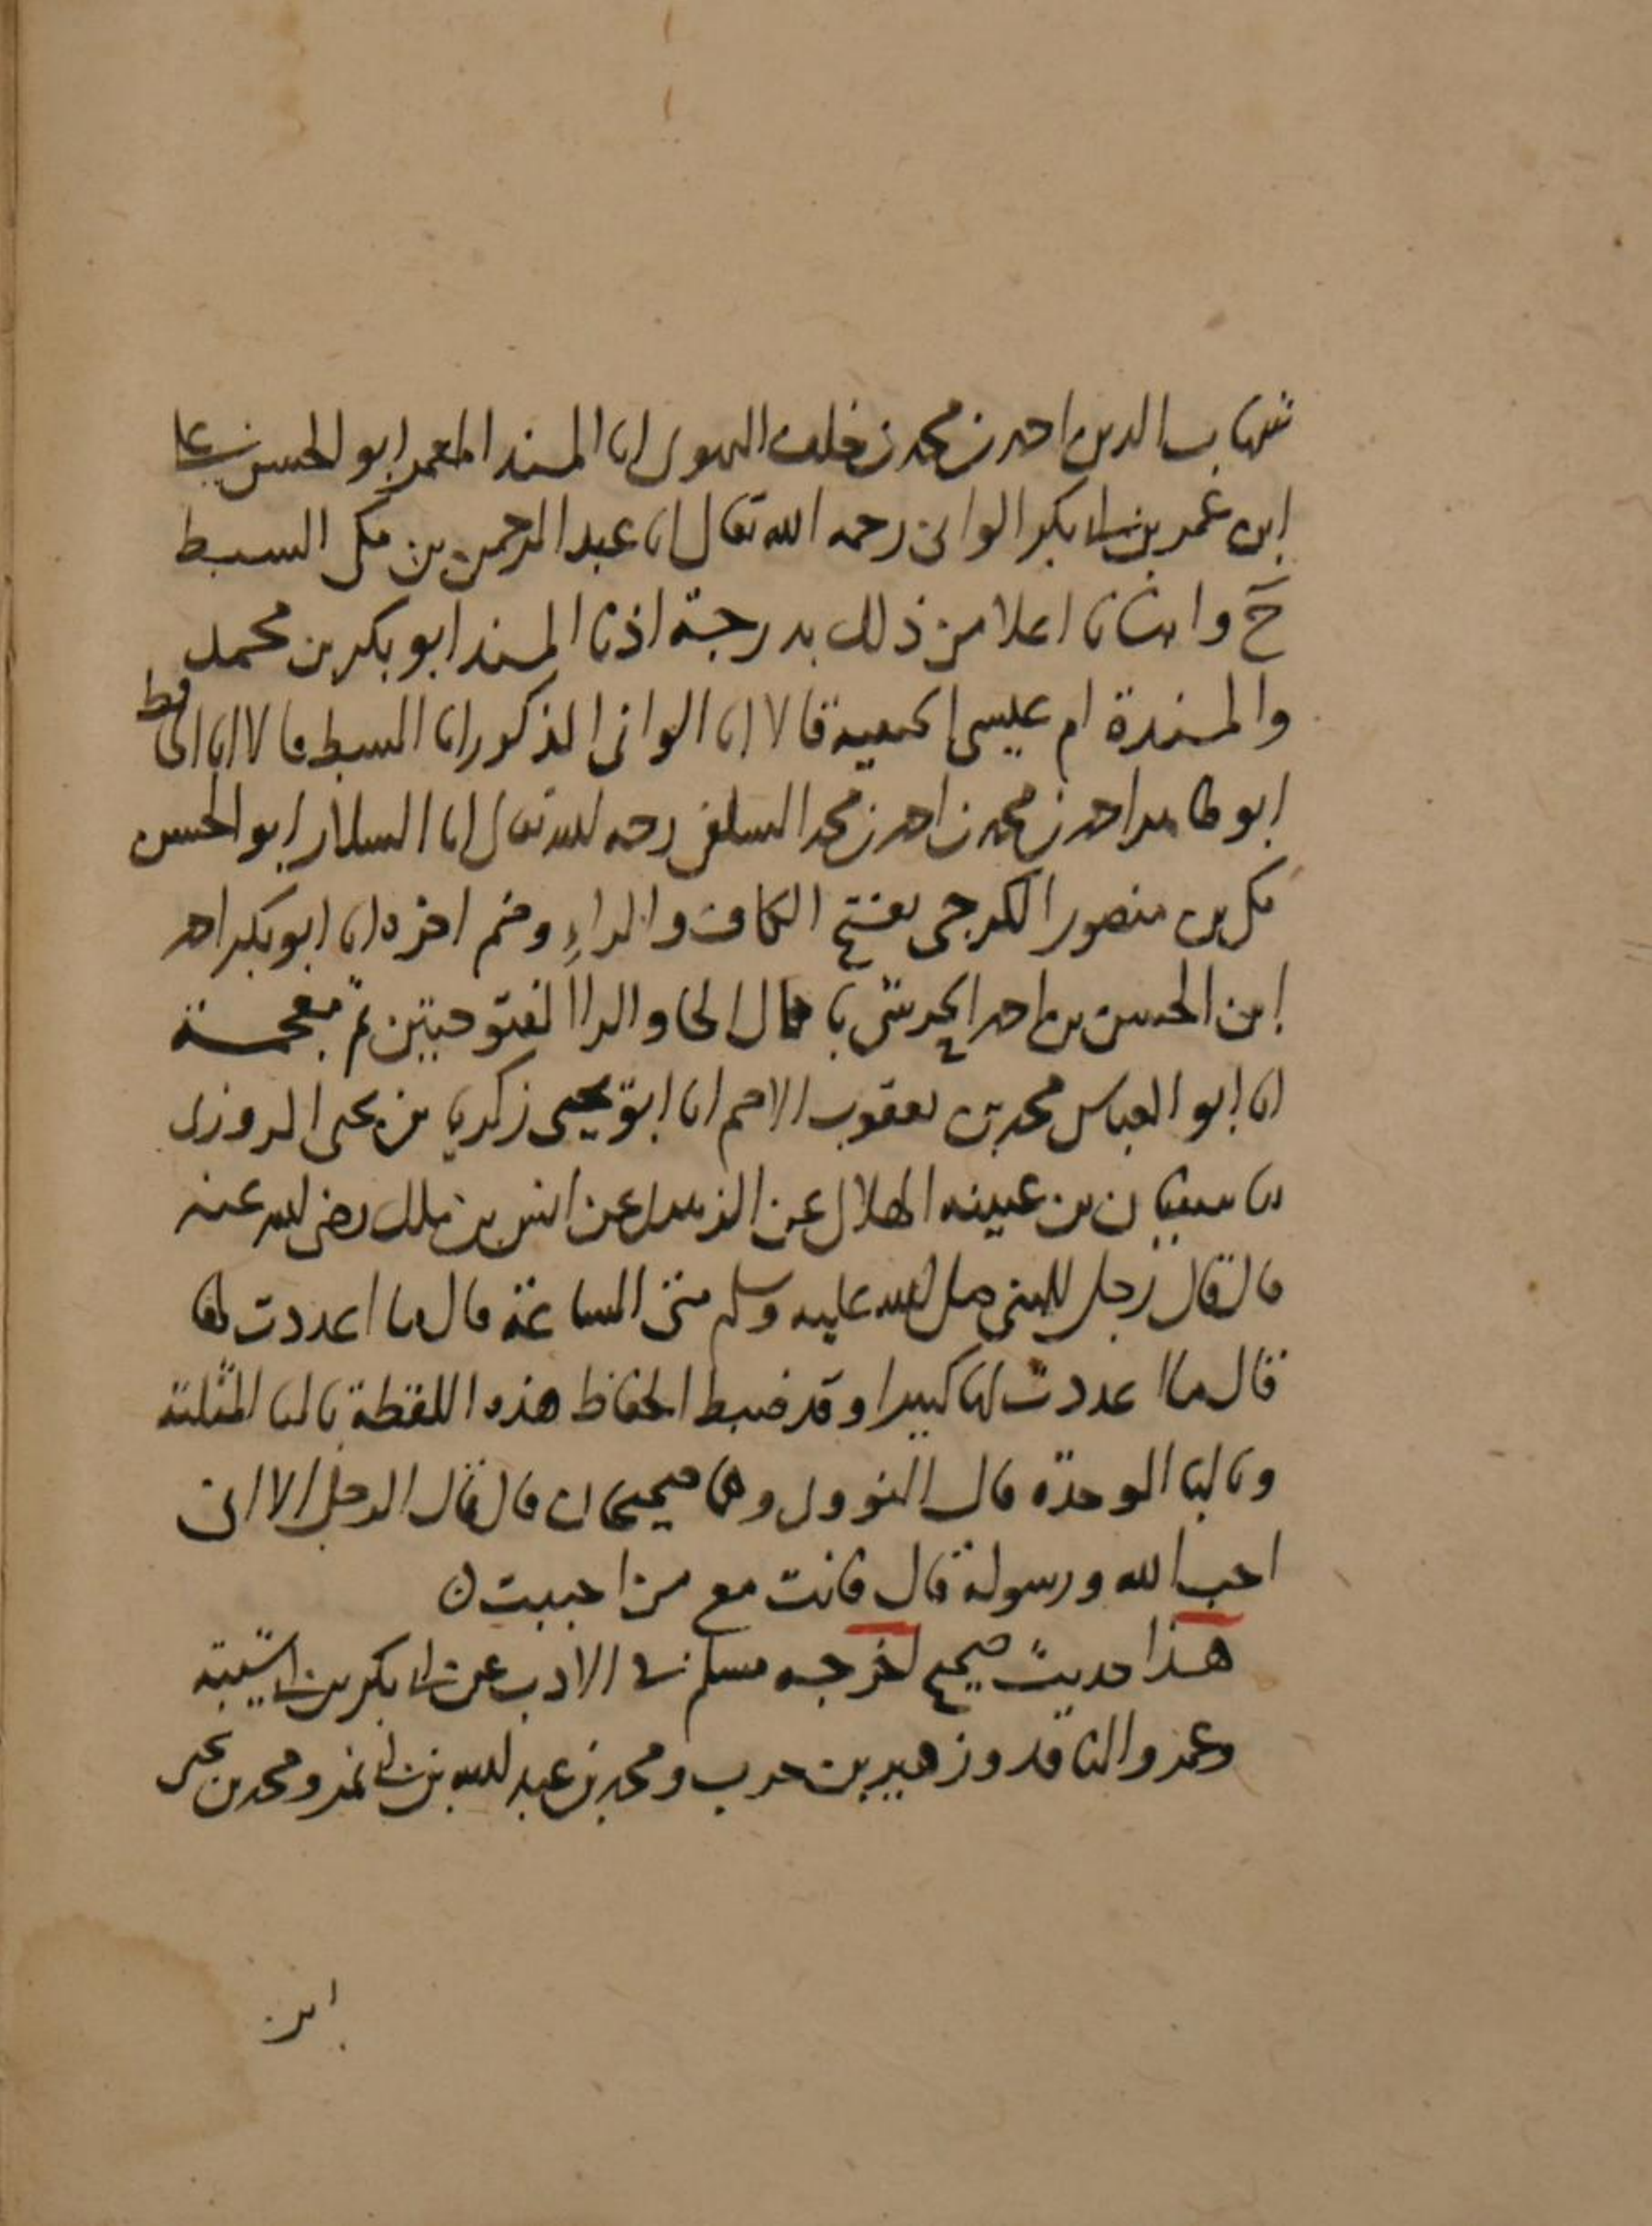 شهاب الدين احمد بن محمد بن خلف انا المسند المعمر ابو الحسن علي
ابن عمر بن ابي بكر الواني رحمه الله تعالى انا عبد الرحمن بن مكي السبط
ح وانبانا اعلا من ذلك بدرجة اذنا المسند ابو بكر بن محمد
والمسندة ام عيسى الحنفيه قالا انا الواني المذكور انا السبط قالا انا الحافظ
ابو طاهر احمد بن محمد بن احمد بن محمد السلفي رحمه الله تعالى انا السلار ابو الحسن
مكي بن منصور الكرجي بفتح الكاف والراءِ وضم اخره انا ابو بكر احمد
ابن الحسن بن احمد الحرشي باهمال الحا والرا المفتوحتين ثم معجمة
انا ابو العباس محمد بن يعقوب الاصم انا ابو يحيى زكريا بن يحيى المروزى
نا سفيان بن عيينه الهلالى عن الزهرى عن انس بن ملك رضى الله عنه
قال قال رجل للنبي صلى الله عليه وسلم متى الساعة قال ما اعددت لها
قال ما اعددت لها كبيرا وقد ضبط الحفاظ هذه اللفظة بالثا المثلثة
وبالبا الموحدة قال النووى وهما صحيحان قال فقال الرجل الا اني
احب الله ورسوله قال فانت مع من احببت ن
هذا حديث صحيح اخرجه مسلم في الادب عن ابي بكر بن ابي شيبة
وعمرو الناقد وزهير بن حرب ومحمد بن عبد الله بن نمير ومحمد بن يحيى
ابن